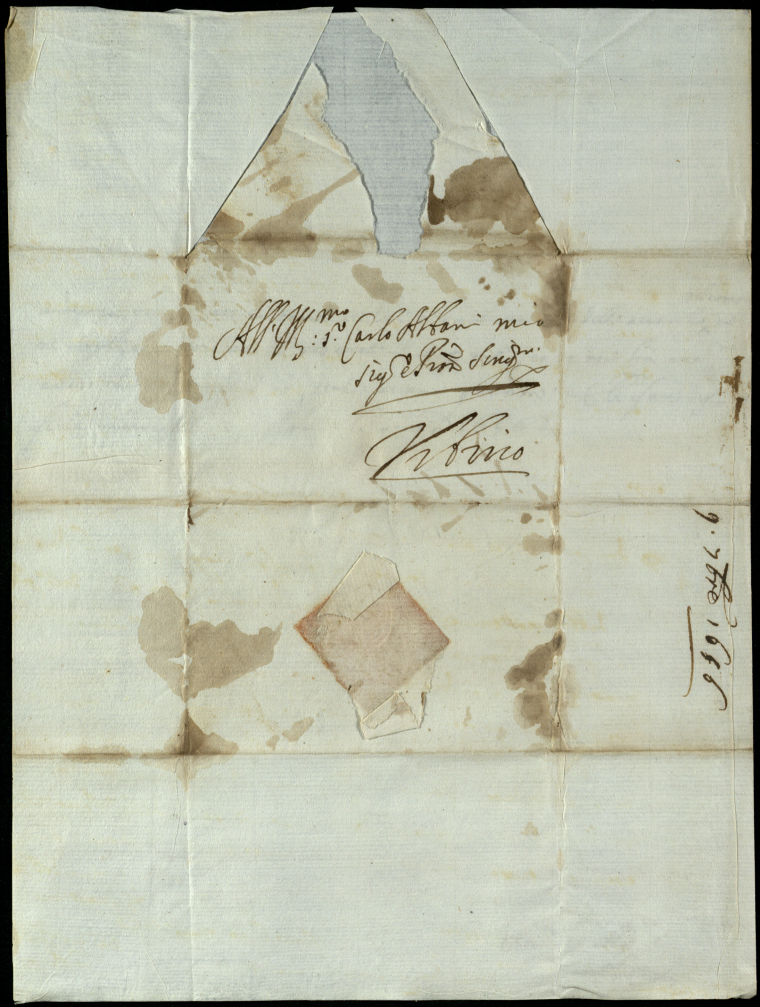 All'Ill:mo S.r Carlo Albani mio
sig.re e Pron Sing.mo
Vrbino
9. 7bre 1656